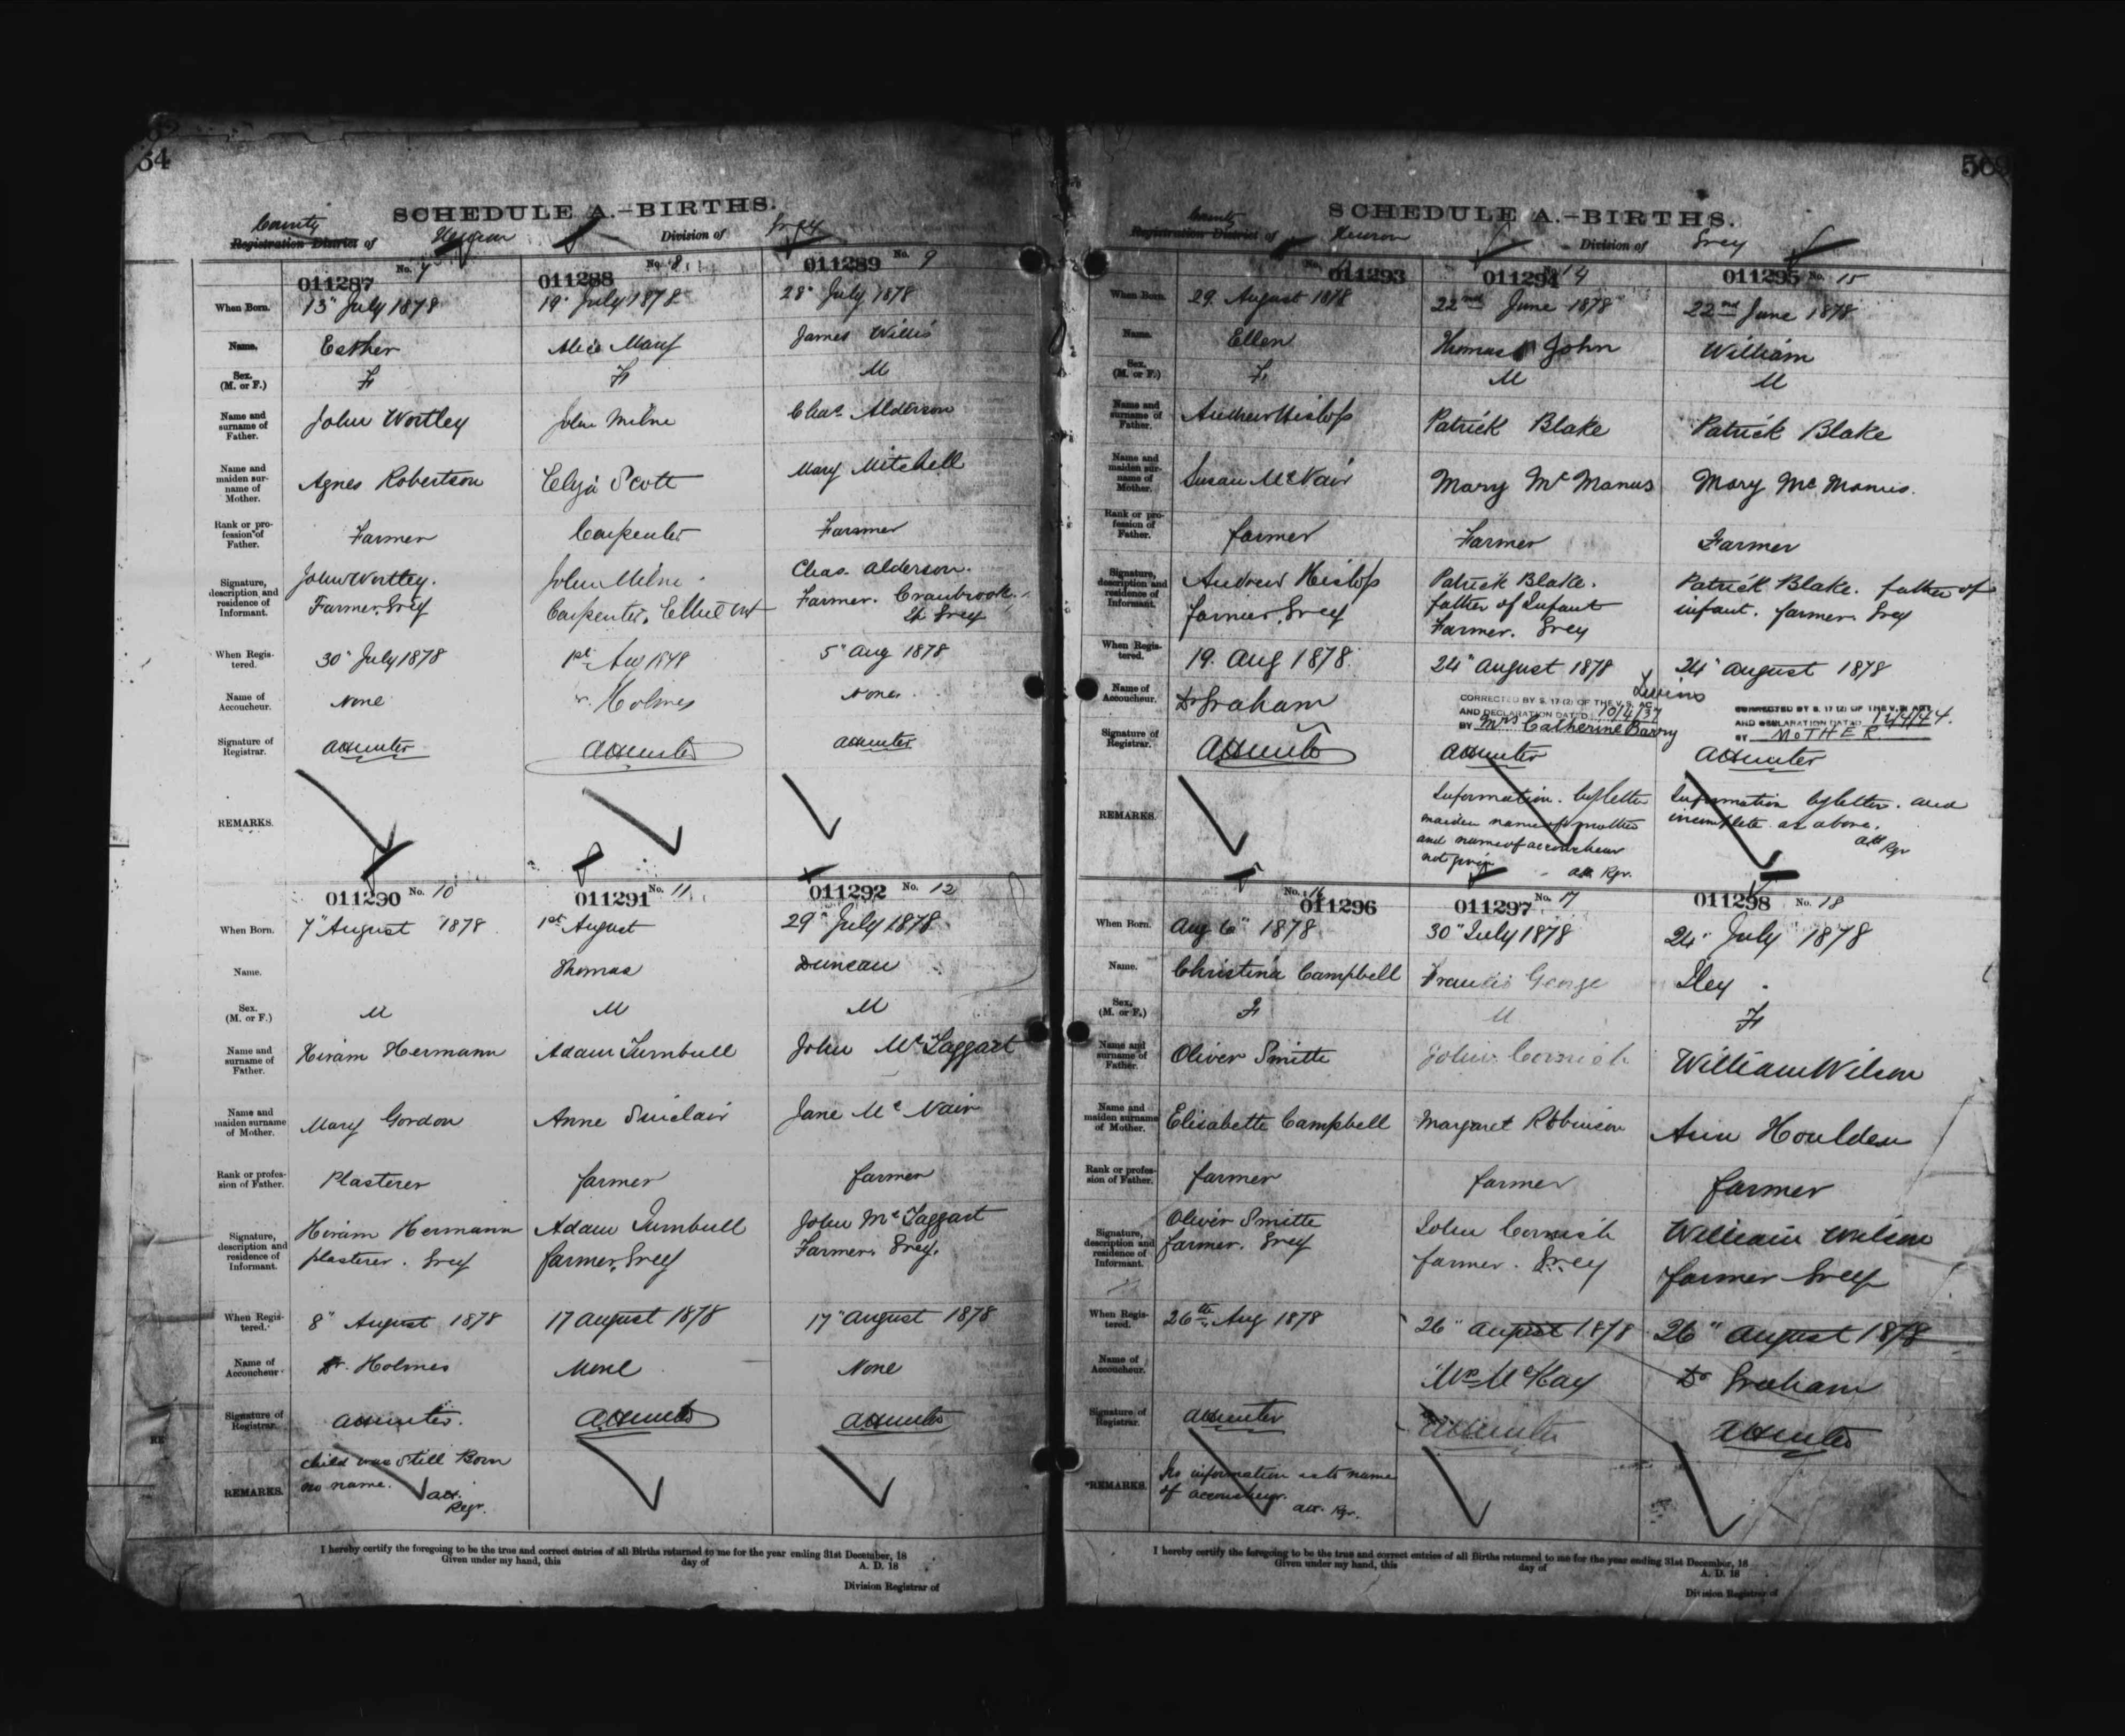 64
SCHEDULE A.—BIRTHS.
County
Registration District of Huron Division of Grey
011287 No. 7
011288 No. 8
011289 No. 9
When Born. 13" July 1878 19" July 1878 28" July 1878
Name. Esther Alice Mary James Willis
Sex. (M. or F.) F F M
Name and surname of Father. John Wortley John Milne Chas Alderson
Name and maiden surname of Mother. Agnes Robertson Eliza Scott Mary Mitchell
Rank or profession of Father. Farmer Carpenter Farmer
Signature, description and residence of Informant. John Wortley. Farmer, Grey John Milne. Carpenter, Ethel Chas. Alderson. Farmer. Cranbrook. Grey
When Registered. 30" July 1878 1st Aug 1878 5" Aug 1878
Name of Accoucheur. None Holmes None
Signature of Registrar.
REMARKS.
011290 No. 10
011291 No. 11
011292 No. 12
When Born. 7" August 1878 1st August 29" July 1878
Name. Thomas Duncan
Sex. (M. or F.) M M M
Name and surname of Father. Hiram Hermann Adam Turnbull John McTaggart
Name and maiden surname of Mother. Mary Gordon Anne Sinclair Jane McNair
Rank or profession of Father. Plasterer farmer farmer
Signature, description and residence of Informant. Hiram Hermann plasterer. Grey Adam Turnbull farmer, Grey John McTaggart Farmer. Grey.
When Registered. 8" August 1878 17 August 1878 17" August 1878
Name of Accoucheur. Dr. Holmes None None
Signature of Registrar.
REMARKS. child was still Born no name. Regr.
I hereby certify the foregoing to be the true and correct entries of all Births returned to me for the year ending 31st December, 18
Given under my hand, this day of A. D. 18
Division Registrar of
SCHEDULE A.—BIRTHS.
County
Registration District of Huron Division of Grey
No. 011293
011294 14
011295 No. 15
When Born. 29. August 1878 22nd June 1878 22nd June 1878
Name. Ellen Thomas John William
Sex. (M. or F.) F M M
Name and surname of Father. Andrew Hislop Patrick Blake Patrick Blake
Name and maiden surname of Mother. Susan McNair Mary McManus Mary McManus.
Rank or profession of Father. farmer Farmer Farmer
Signature, description and residence of Informant. Andrew Hislop farmer, Grey Patrick Blake. father of Infant Farmer. Grey Patrick Blake. father of infant. farmer. Grey
When Registered. 19. Aug 1878. 24" August 1878 24" August 1878
Name of Accoucheur. Dr Graham
CORRECTED BY S. 17 (2) OF THE V.S. ACT
AND DECLARATION DATED 10/4/37
BY Mrs Catherine Barry
CORRECTED BY S. 17 (2) OF THE V.S. ACT
AND DECLARATION DATED 12/4/44.
BY MOTHER
Signature of Registrar.
REMARKS. Information. by letter maiden name of mother and name of accoucheur not given Rgr. Information by letter. and incomplete as above. Rgr
No. 16 011296
011297 No. 17
011298 No. 18
When Born. Aug 6" 1878 30" July 1878 24" July 1878
Name. Christina Campbell Francis George
Sex. (M. or F.) F M F
Name and surname of Father. Oliver Smith John Cornish William Wilson
Name and maiden surname of Mother. Elisabeth Campbell Margaret Robinson Ann Houlden
Rank or profession of Father. farmer farmer farmer
Signature, description and residence of Informant. Oliver Smith farmer. Grey John Cornish farmer. Grey William Wilson farmer Grey
When Registered. 26th Aug 1878 26" August 1878 26" August 1878
Name of Accoucheur. Mrs McKay Dr Graham
Signature of Registrar.
REMARKS. No information as to name of accoucheur. Rgr.
I hereby certify the foregoing to be the true and correct entries of all Births returned to me for the year ending 31st December, 18
Given under my hand, this day of A. D. 18
Division Registrar of